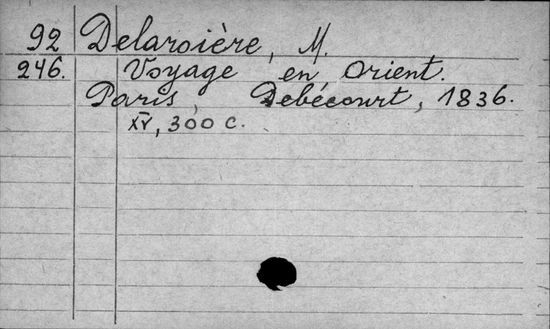 92 Delaroière, M.
246. Voyage en Orient.
Paris, Debécourt, 1836.
XV, 300 c.